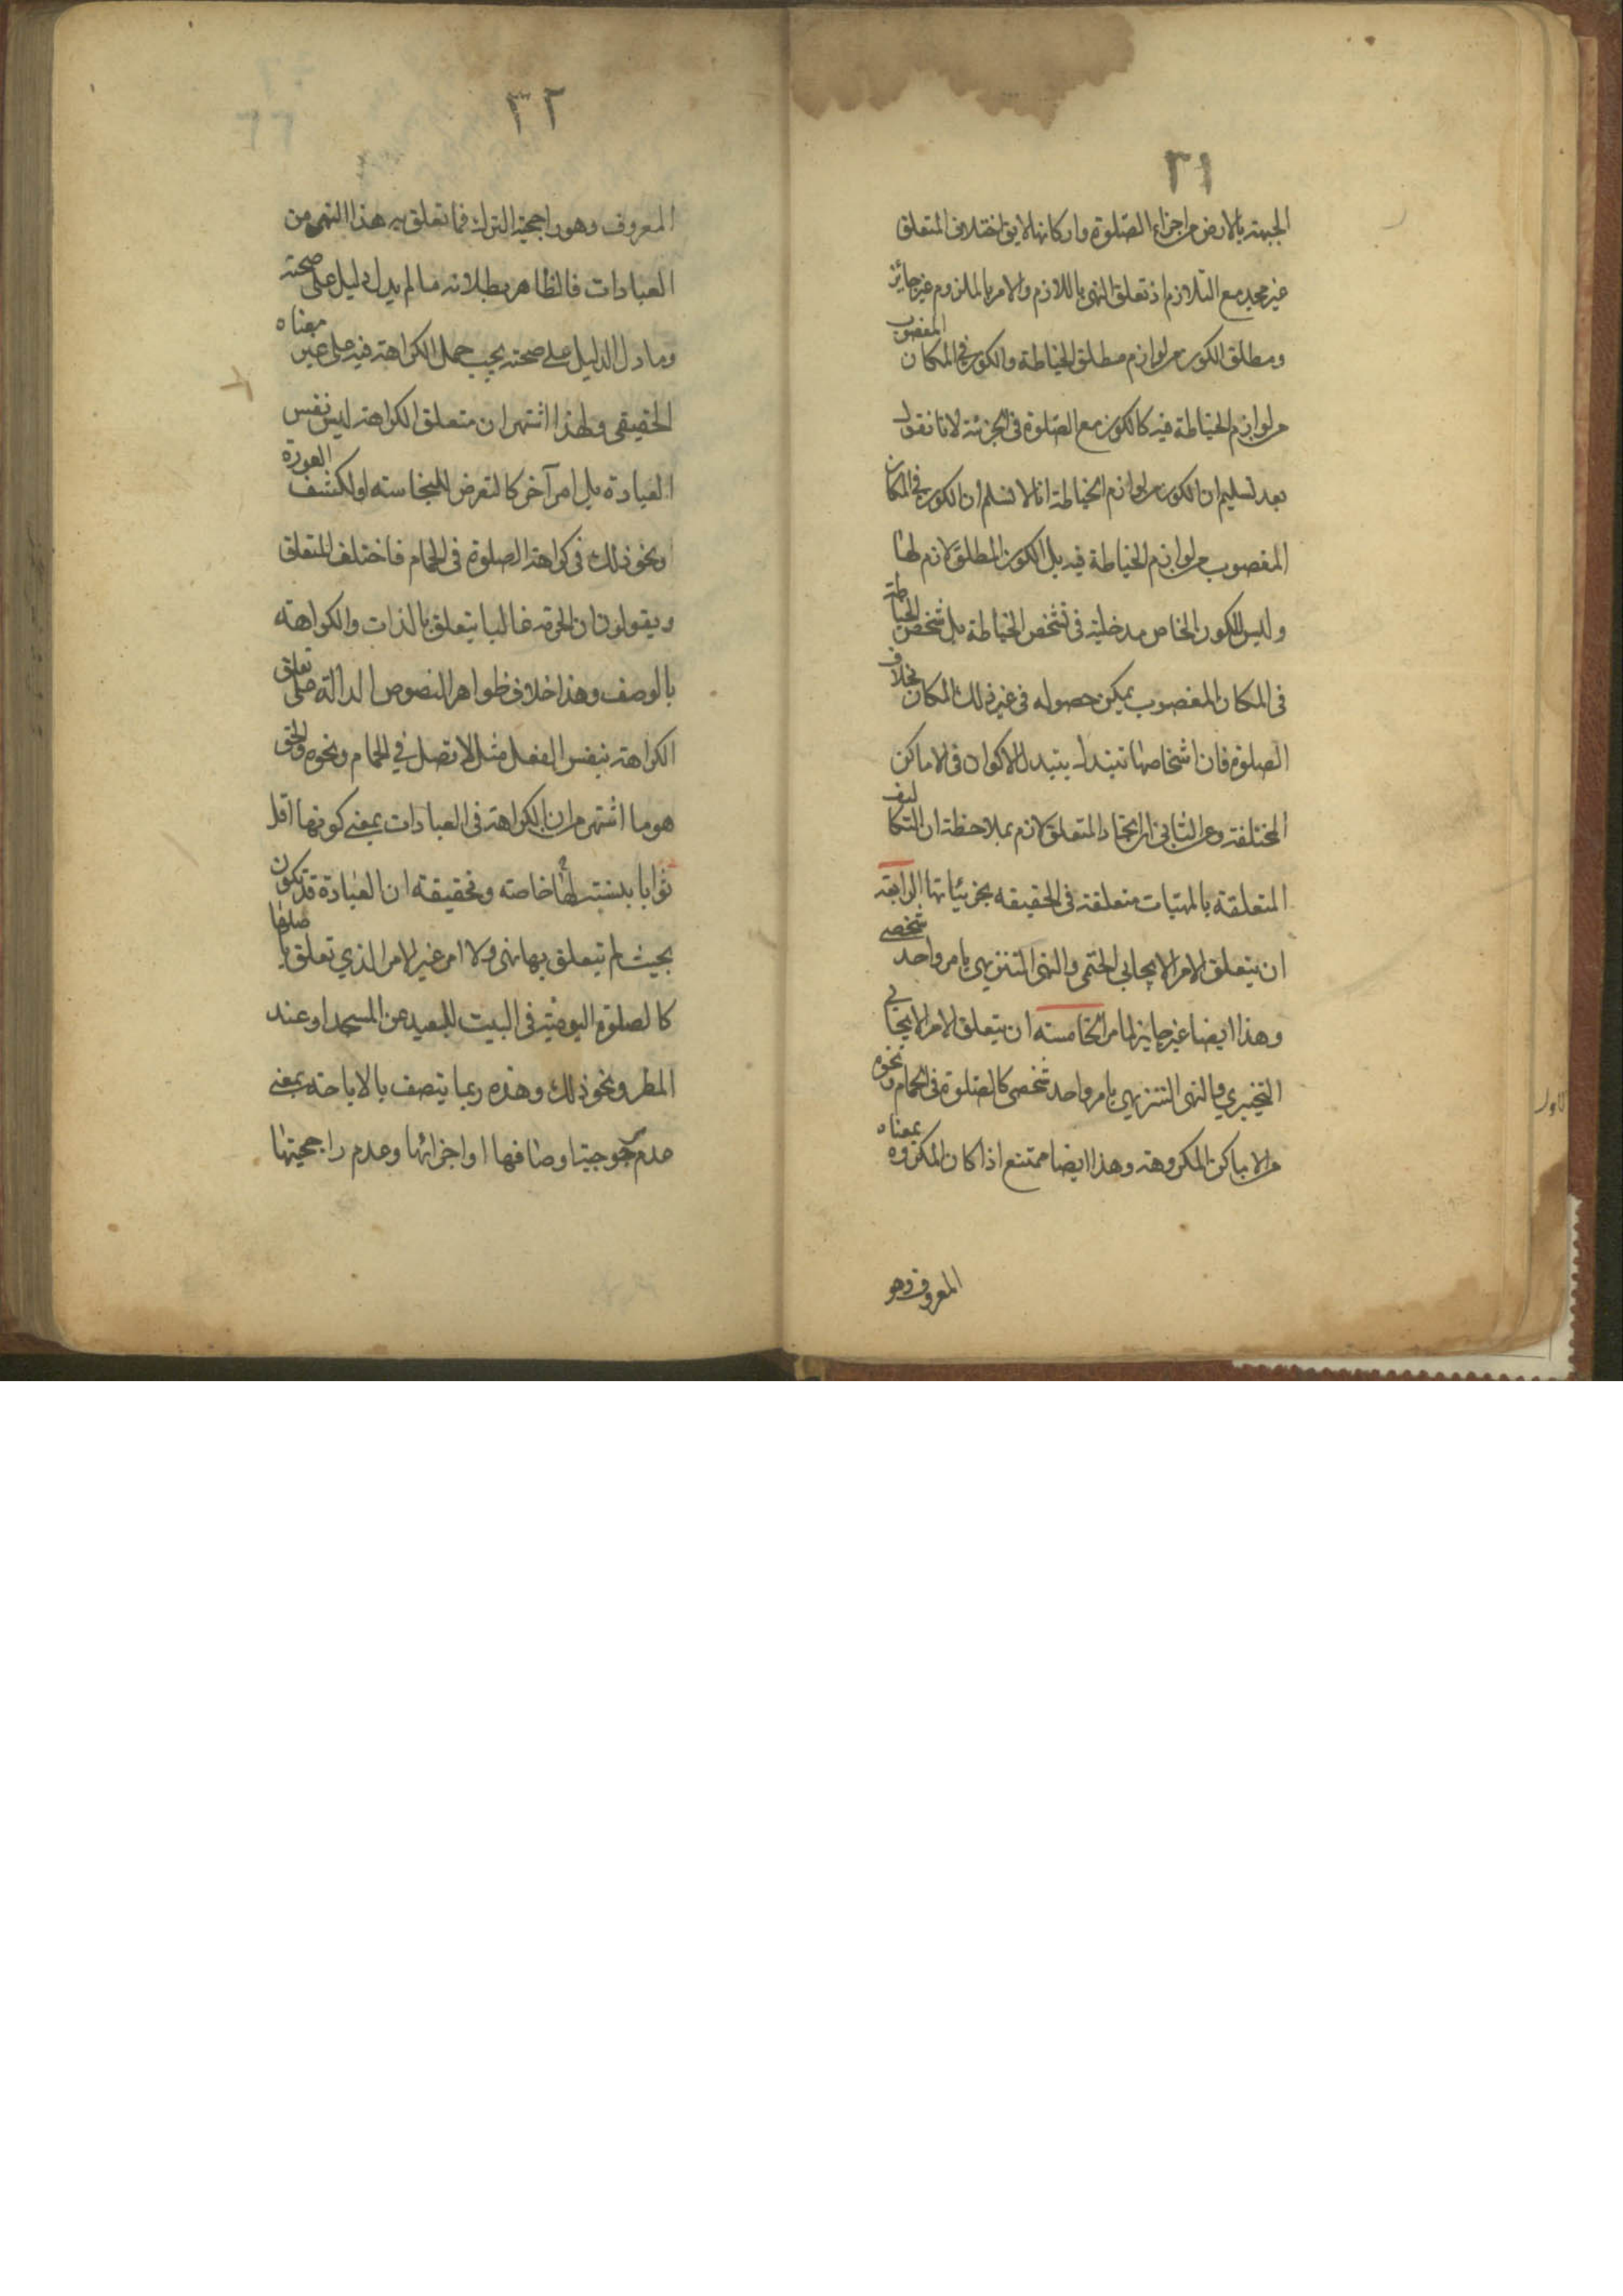 ٣١
الجبهة بالارض من اجزاء الصلوة واركانها لايق اختلاف المتعلق
غير مجد مع التلازم اذ تعلق النهى باللازم والامر بالملزوم غير جائز
ومطلق الكون من لوازم مطلق الخياطة والكون في المكان المغصوب
من لوازم الخياطة فيه كالكون مع الصلوة فى الجزئية لانا نقول
بعد تسليم ان الكون من لوازم الخياطة انا لا نسلم ان الكون في المكان
المغصوب من لوازم الخياطة فيه بل الكون المطلق لازم لها
وليس للكون الخاص مدخلية فى تشخص الخياطة بل شخص الخياطة
فى المكان المغصوب يمكن حصوله فى غير ذلك المكان بخلاف
الصلوة فان اشخاصها تتبدل بتبدل الاكوان فى الاماكن
المختلفة وعن الثانى ان اتحاد المتعلق لازم بملاحظة ان التكاليف
المتعلقة بالمهيات متعلقة فى الحقيقه بجزئياتها الرابعة
ان يتعلق الامر الايجابى الحتمى والنهى التنزيهى بامر واحد شخصي
وهذا ايضا غير جايز لما مر الخامسه ان يتعلق الامر الايجابي
التخييري والنهى التنزيهي بامر واحد شخصى كالصلوة فى الحمام ونحوه
من الاماكن المكروهة وهذا ايضا ممتنع اذا كان المكروه بمعناه
المعروف وهو
٣٢
المعروف وهو راجحية الترك فما تعلق به هذا النهى من
العبادات فالظاهر بطلانه ما لم يدل دليل على صحته
وما دل الدليل على صحته يجب حمل الكراهة فيه على غير معناه
الحقيقى ولهذا اشتهر ان متعلق الكراهة ليس نفس
العبادة بل امر آخر كالتعرض للنجاسته او لكشف العورة
ونحو ذلك فى كراهة الصلوة فى الحمام فاختلف المتعلق
ويقولون ان الحرمة غالبا يتعلق بالذات والكراهة
بالوصف وهذا خلاف ظواهر النصوص الدالة على تعلق
الكراهة بنفس الفعل مثل لا تصل في الحمام ونحوه والحق
هو ما اشتهر من ان الكراهة فى العبادات بمعنى كونها اقل
ثوابا بنسبت لها خاصته وتحقيقه ان العبادة قد تكون
بحيث لم يتعلق بها نهى ولا امر غير الامر الذي تعلق باصلها
كالصلوة اليومية فى البيت للبعيد عن المسجد او عند
المطر ونحو ذلك وهذه ربما يتصف بالاباحة بمعنى
عدم مرجوحية اوصافها او اجزائها وعدم راجحيتها